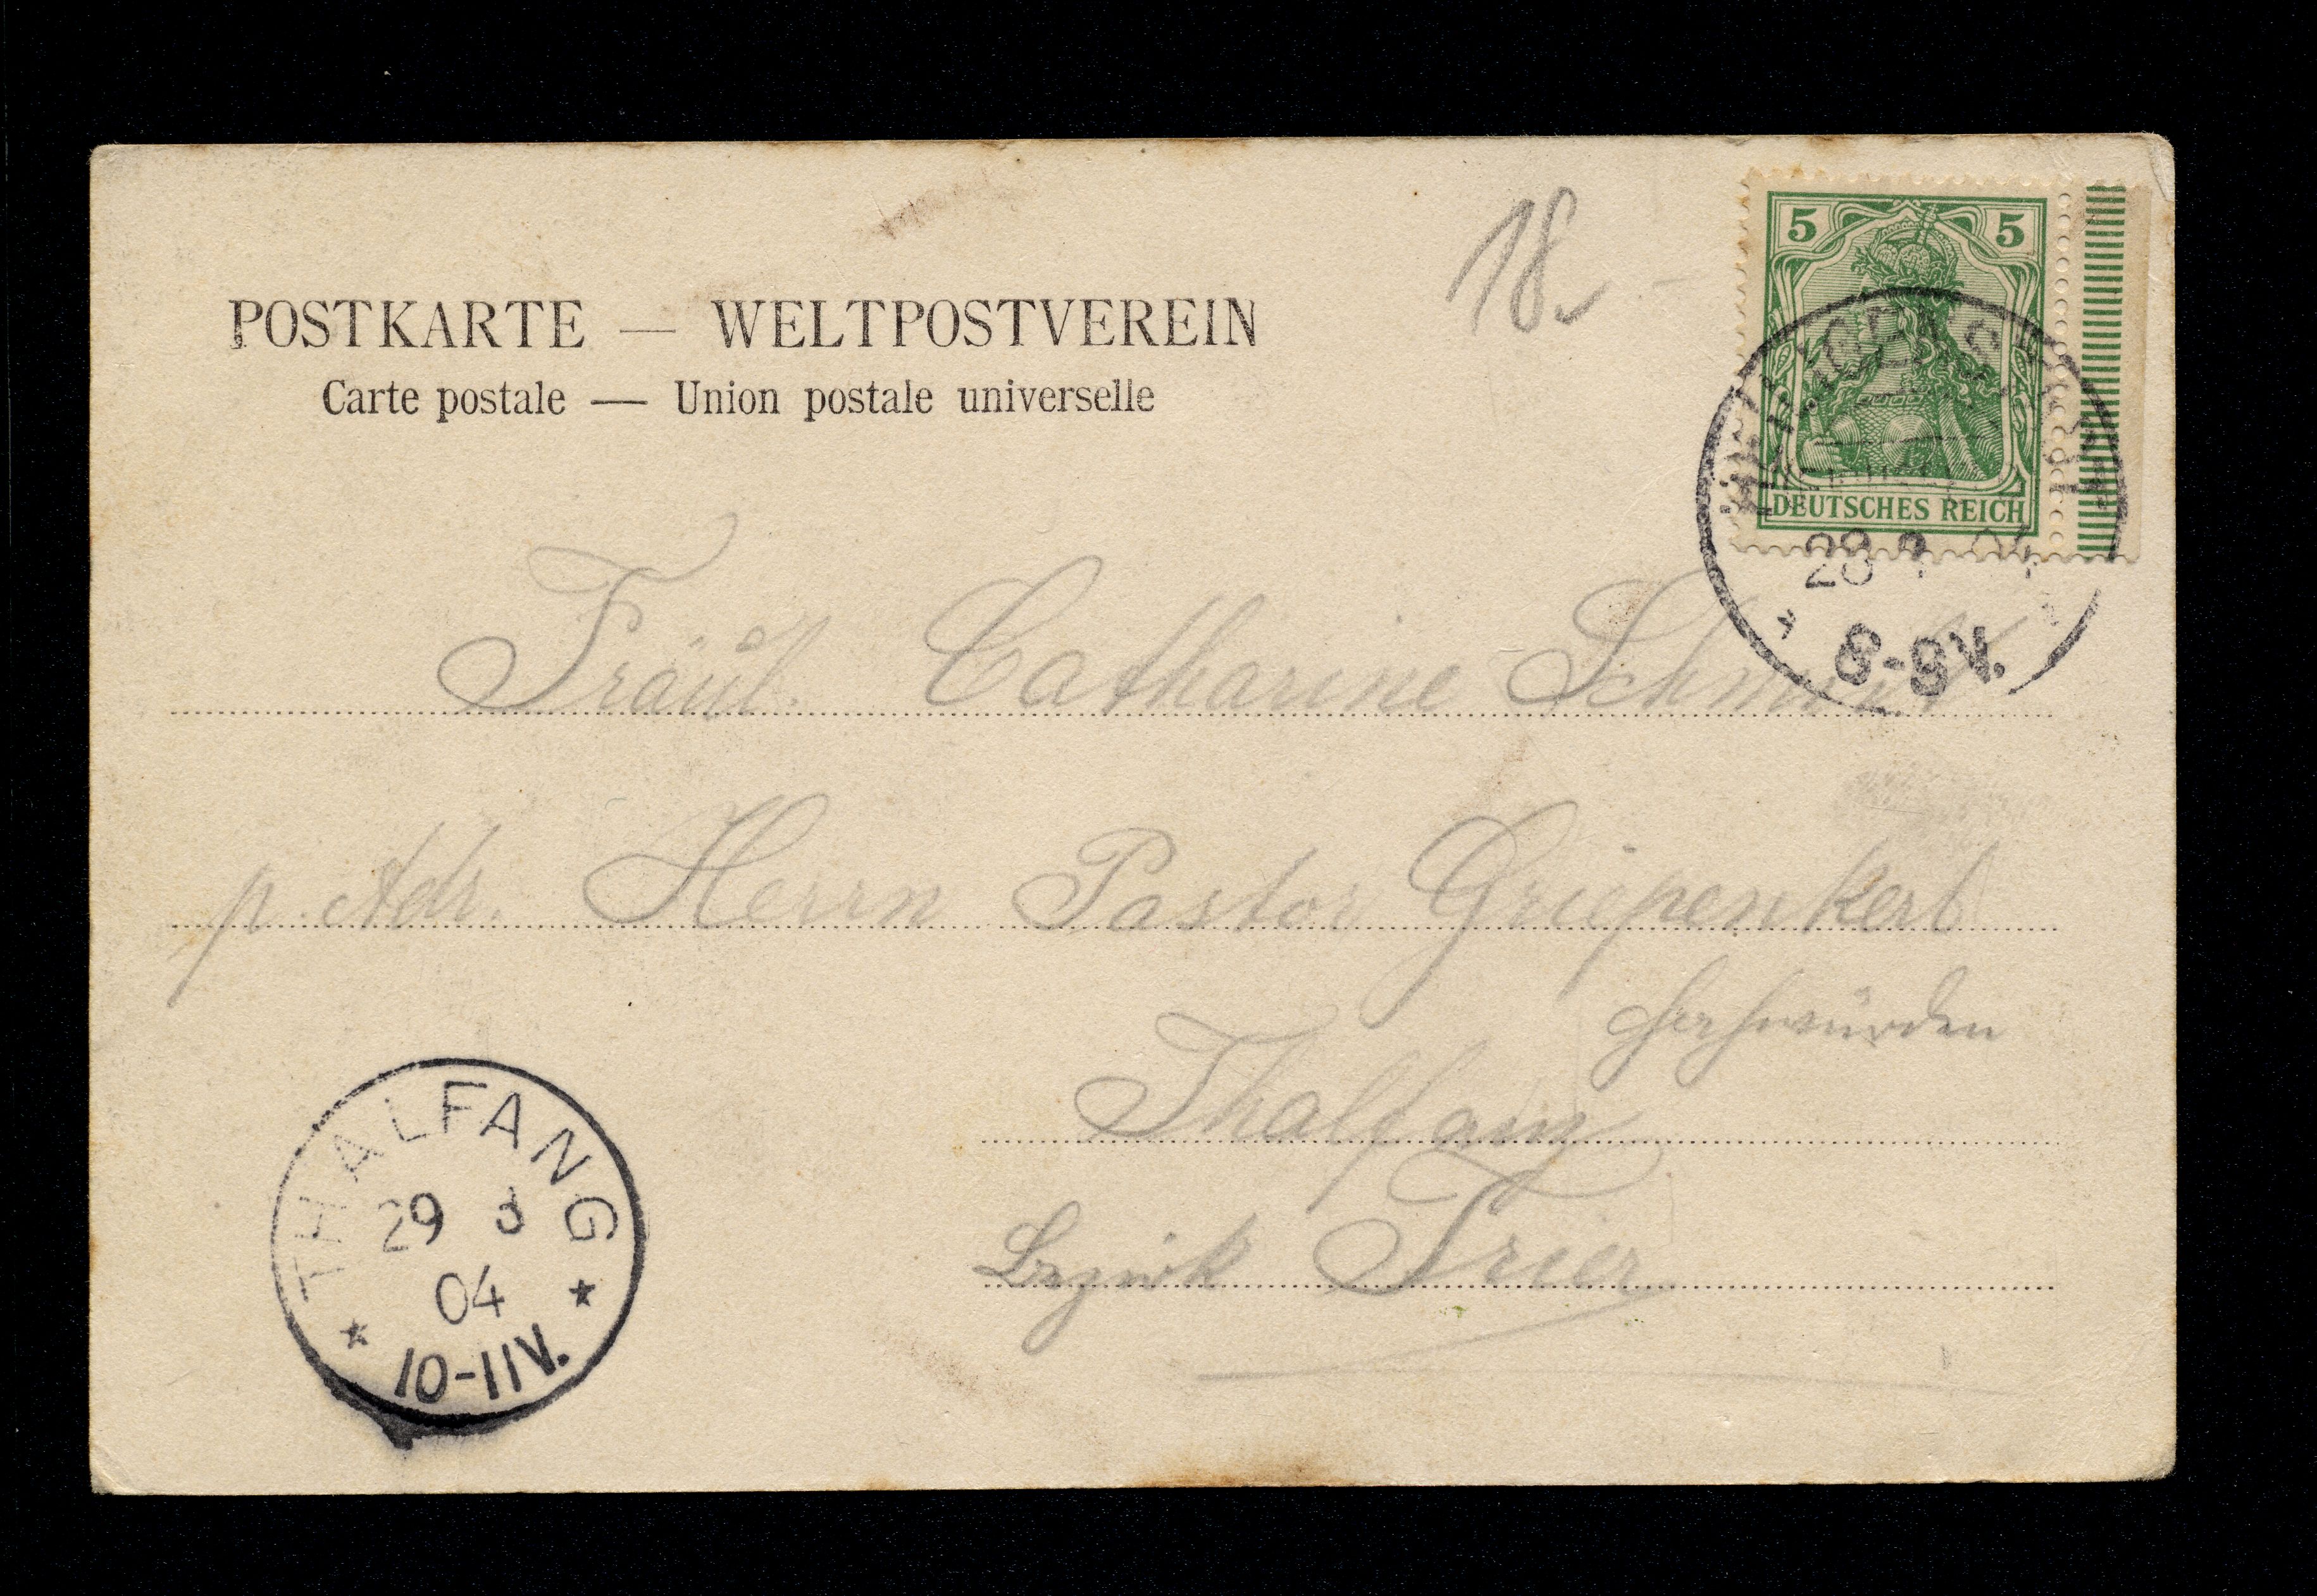 POSTKARTE — WELTPOSTVEREIN
Carte postale — Union postale universelle
18.-
5 5
DEUTSCHES REICH
28 3 04
8-9V.
Fräul. Catharine Schmidt
p. Adr. Herrn Pastor Griepenkerl
Hochwürden
Thalfang
Bezirk Trier
THALFANG
29 3
04
10-11V.